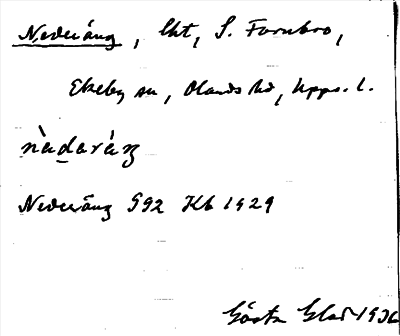 Nederäng, lht, S. Fornbro,
Ekeby sn, Olands hd, Upps. l.
nàdaráŋ
Nederäng 592 Kb 1929
Gösta Glad 1936